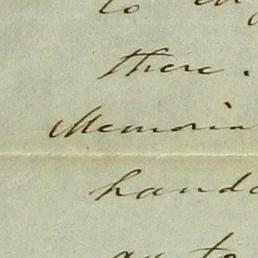 to
there.
Memoria
hando
to